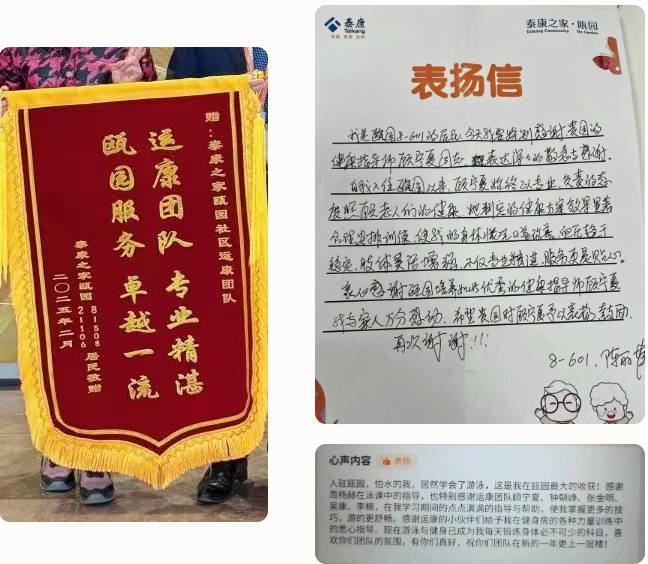 赠：泰康之家瓯园社区运康团队
运康团队 专业精湛
瓯园服务 卓越一流
泰康之家瓯园 居民敬赠
二〇二五年二月
泰康
Taikang
泰康之家·瓯园
Taikang Community
Ou Garden
表扬信
我是瓯园8-601的居民,今天我要特别感谢贵园的
健康指导师顾宁夏同志,表达深深的敬意与感谢.
自我入住瓯园以来,顾宁夏始终以专业,负责的态
度照顾老人们的健康.她制定的健康方案效果显著
合理安排训练,使我的身体情况日益改善,血压趋于
稳定,肢体灵活增强,不仅专业精通,服务更是贴心.
衷心感谢瓯园培养出这优秀的健康指导师顾宁夏
我与家人万分感动.希望贵园对顾宁夏予以表扬,鼓励.
再次谢谢!!!
8-601.
心声内容 表扬
入驻瓯园，怕水的我，居然学会了游泳，这是我在瓯园最大的收获！感谢
周杨赫在泳课中的指导，也特别感谢运康团队顾宁夏、钟朝峥、张金明、
吴康、李楠，在我学习期间的点点滴滴的指导与帮助，使我掌握更多的技
巧，游的更舒畅。感谢运康的小伙伴们给予我在健身房的各种力量训练中
的悉心指导。现在游泳与健身已成为我每天锻炼身体必不可少的科目，喜
欢你们团队的氛围，有你们真好，祝你们团队在新的一年更上一层楼！